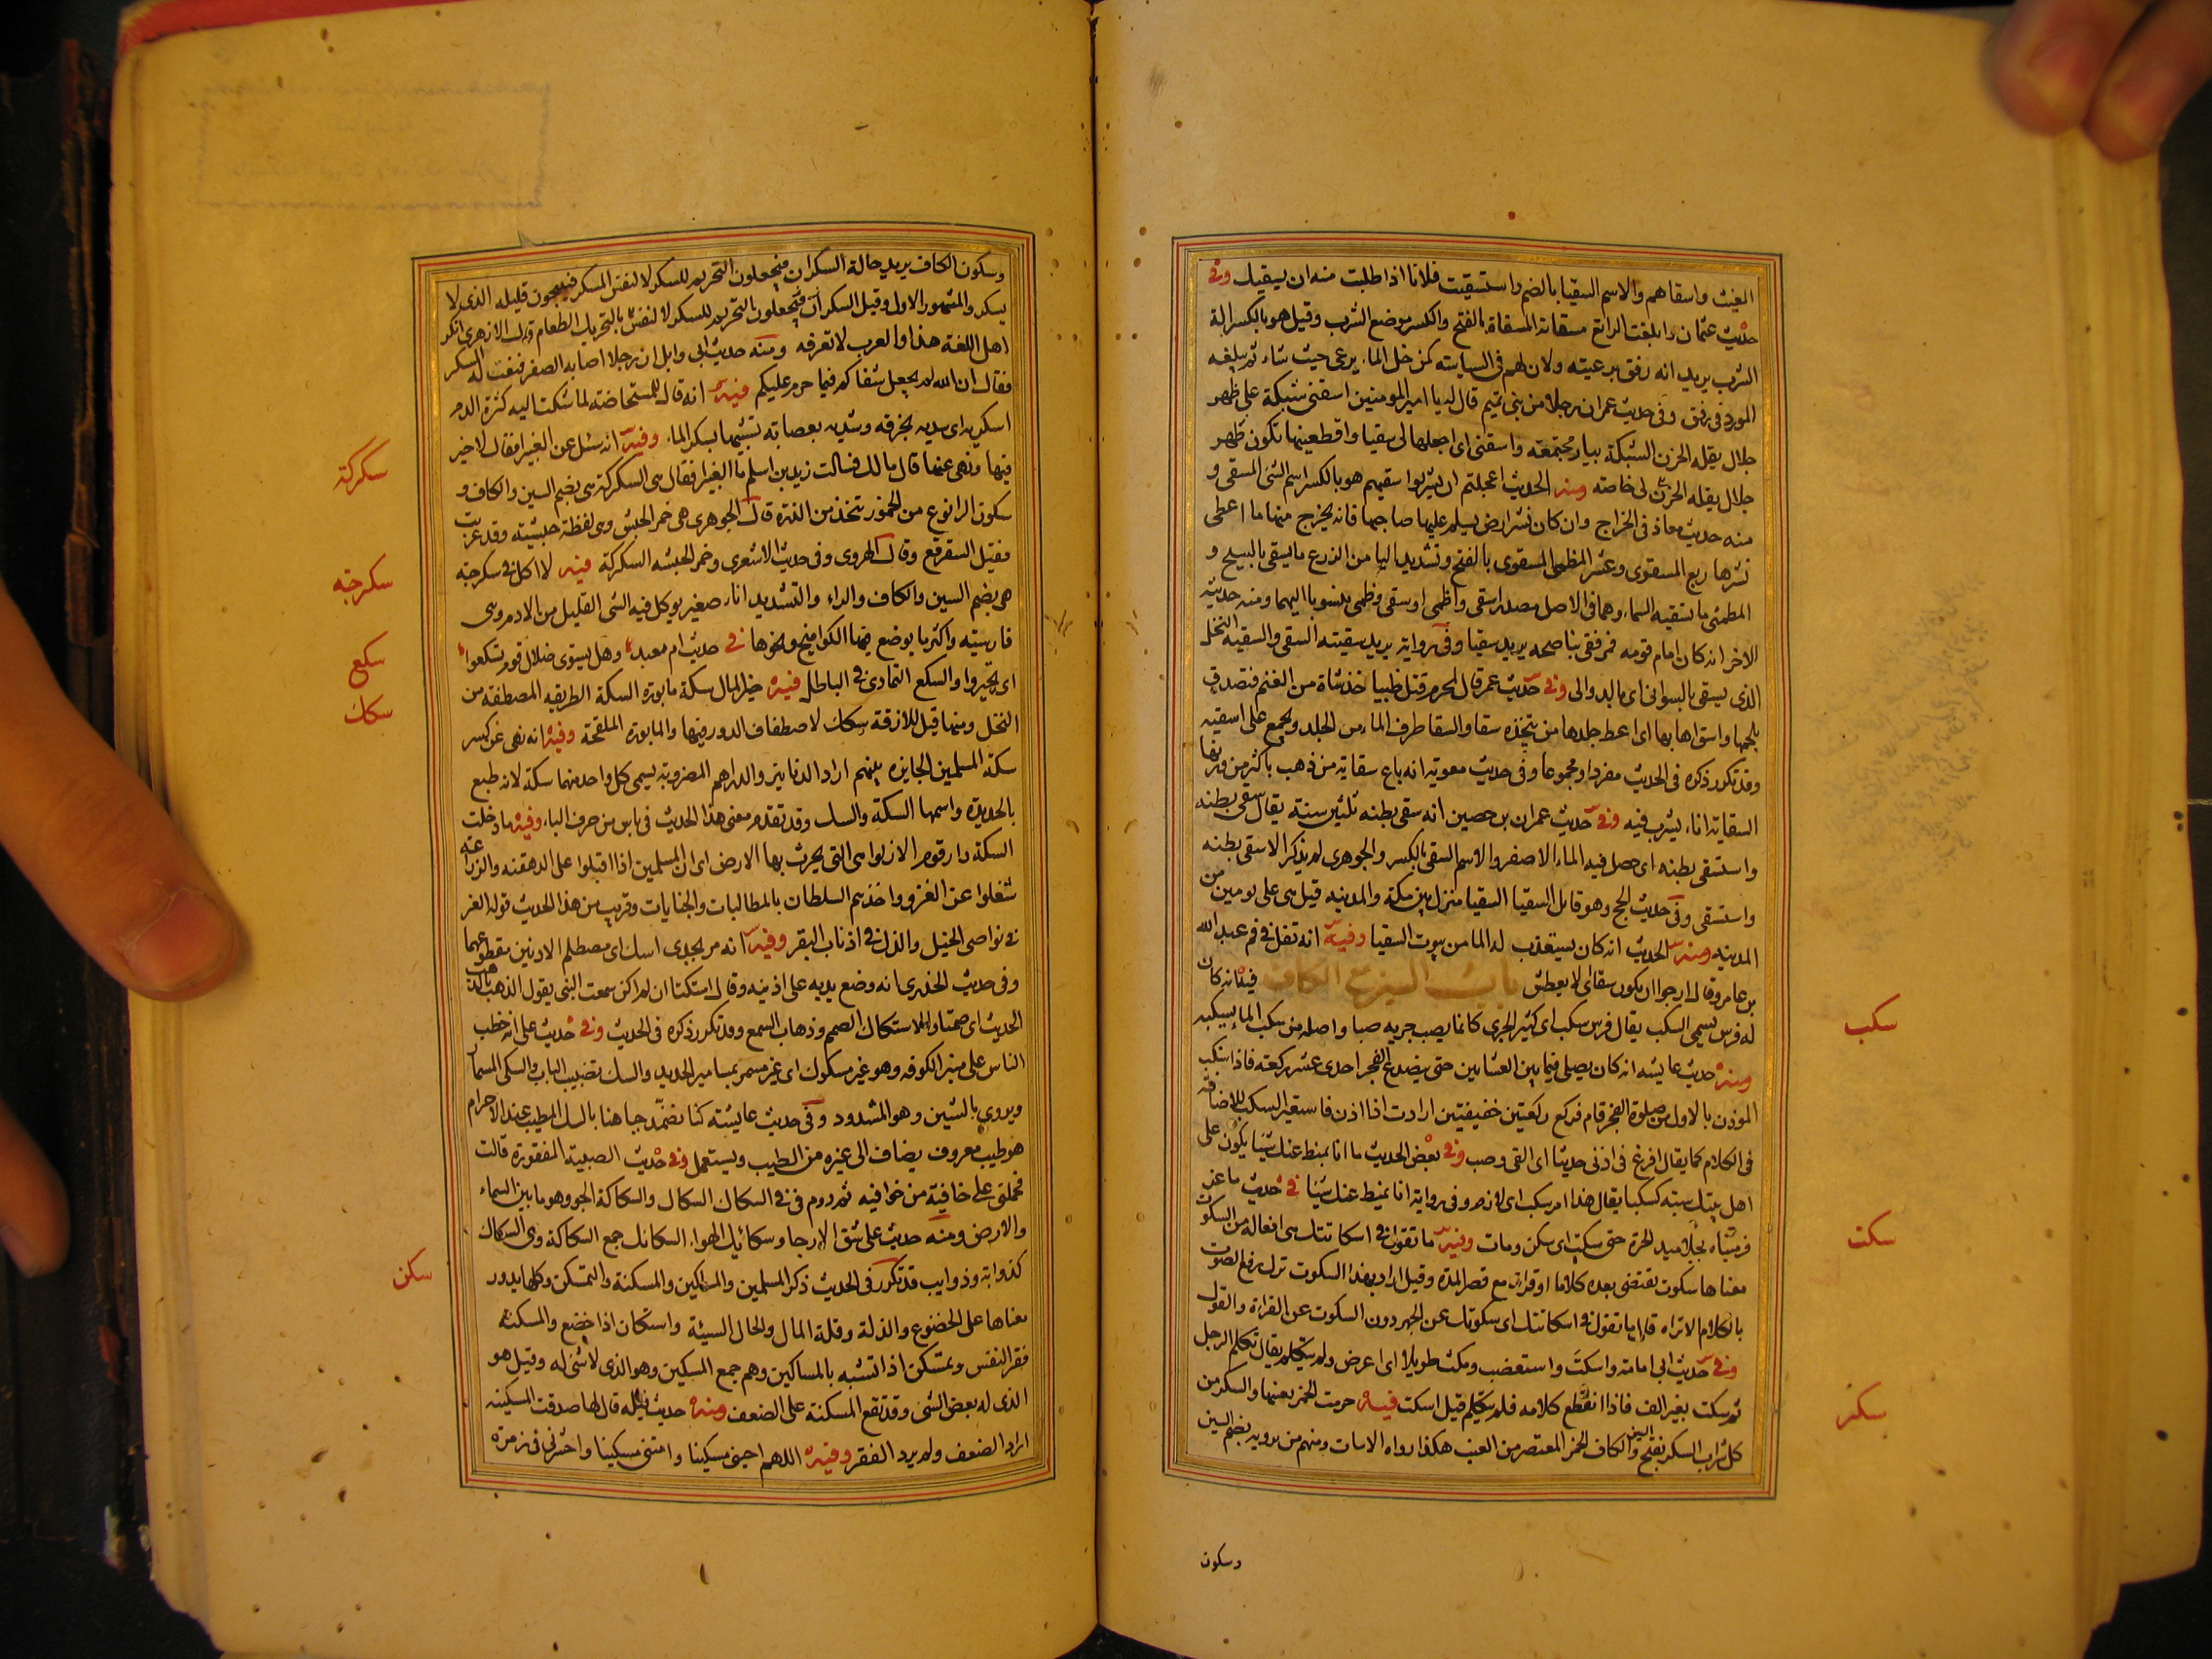 الغيث واسقاهم والاسم السقيا بالضم واستسقيت فلانا اذا طلبت منه ان يسقيك وفى
حديث عثمان وابلغت الراتع مسقاته المسقاة بالفتح والكسر موضع الشرب وقيل هو بالكسر الة
الشرب يريد انه رفق برعيته ولان لهم فى السياسه كمن خلى المال يرعى حيث شاء ثم يبلغه
المورد فى رفق وفى حديث عمر ان رجلا من بنى تميم قال له يا امير المومنين اسقنى شبكة على ظهر
جلال بقله الحزن الشبكة بيار مجتمعة واسقنى اى اجعلها لى سقيا واقطعنيها تكون
جلال بقله الحزن لى خاصه ومنه الحديث اعجلتم ان يشربوا سقيهم هو بالكسر اسم الشى المسقى و
منه حديث معاذ فى الخراج وان كان نشر ارض يسلم عليها صاجها فانه يخرج منها ما اعطى
نشرها ربع المسقوى وعشر المظمى المسقوى بالفتح وتشديد اليا من الزرع ما يسقى بالسيح و
المظمئ ما تسقيه السماء وهما فى الاصل مصدر اسقى واظمى او سقى وظمى منسوبا اليهما ومنه حديثه
الاخر انه كان امام قومه فمر فتى بناضحه يريد سقيا وفى رواية يريد سقيته السقى والسقيه النخل
الذى يسقى بالسوانى اى بالدوالى وفى حديث عمر قال لمحرم قتل ظبيا خذ شاة من الغنم فتصدق
بلحمها واسق اهابها اى اعط جلدها من يتخذه سقا والسقا ظرف الماء من الجلد ويجمع على اسقيه
وقد تكرر ذكره فى الحديث مفردا ومجموعا وفى حديث معوية انه باع سقاية من ذهب باكثر من وزنها
السقاية اناء يشرب فيه وفى حديث عمران بن حصين انه سقى بطنه ثلثين سنة يقال سقى بطنه
واستسقى بطنه اى حصل فيه الماء الاصفر والاسم السقى بالكسر والجوهرى لم يذكر الا سقى بطنه
واستسقى وفى حديث الحج وهو قايل السقيا السقيا منزل بين مكة والمدينه قيل هى على يومين من
المدينه ومنه الحديث انه كان يستعذب له الما من بيوت السقيا وفيه انه تفل فى فم عبد الله
بن عامر وقال ارجوا ان تكون سقاى لا يعطش باب السين مع الكاف فيه انه كان
له فرس يسمى السكب يقال فرس سكب اى كثير الجرى كانما يصب جريه صبا واصله من سكب الماء يسكبه
ومنه حديث عايشه انه كان يصلى فيما بين العشاين حتى ينصدع الفجر احدى عشر ركعة فاذا سكب
الموذن بالاول من صلوة الفجر قام فركع ركعتين خفيفتين ارادت اذا اذن فاستعير السكب للافاضة
فى الكلام كما يقال افرغ فى اذنى حديثا اى القى وصب وفى بعض الحديث ما انا بمنط عنك شيئا يكون على
اهل بيتك سبة كسكبا يقال هذا امر سكب اى لازم وفى رواية انا نميط عنك شيئا فى حديث ماعز
فرميناه بجلاميد الحرة حتى سكت اى سكن ومات وفيه ما تقول فى اسكاتتك هى افعاله من السكوت
معناها سكوت يقتضى بعده كلاما او قراة مع قصر المدة وقيل اراد بهذا السكوت ترك رفع الصوت
بالكلام الا تراه قال ما تقول فى اسكاتتك اى سكوتك عن الجهر دون السكوت عن القراة والقول
وفى حديث ابى امامة واسكت واستغضب ومكث طويلا اى اعرض ولم يتكلم يقال تكلم الرجل
ثم سكت بغير الف فاذا انقطع كلامه فلم يتكلم قيل اسكت فيه حرمت الخمر بعينها والسكر من
كل شراب السكر بفتح السين والكاف الخمر المعتصر من العنب هكذا رواه الاثبات ومنهم من يرويه بضم السين
سكب
سكت
سكر
وسكون
وسكون الكاف يريد حالة السكران فيجعلون التحريم للسكر لا لنفس المسكر فيبيحون قليله الذى لا
يسكر والمشهور الاول وقيل السكر بالتحريك الطعام قال الازهرى انكر
اهل اللغة هذا والعرب لا تعرفه ومنه حديث ابى وايل ان رجلا اصابه الصفر فنعت له السكر
فقال ان الله لم يجعل شفاكم فيما حرم عليكم فيه انه قال للمستحاضة لما شكت اليه كثرة الدم
اسكريه اى سديه بخرقه وشديه بعصابه تشبيها بسكر الماء وفيه انه سئل عن الغبيرا فقال لا خير
فيها ونهى عنها قال مالك فسالت زيد بن اسلم ما الغبيرا فقال هى السكركة هى بضم السين والكاف و
سكون الرا نوع من الخمور تتخذ من الذرة قال الجوهرى هى خمر الحبش وهى لفظة حبشيه وقد عربت
فقيل السقرقع وقال الهروى وفى حديث الاشعرى وخمر الحبشه السكركة فيه لا اكل فى سكرجة
هى بضم السين والكاف والراء والتشديد اناء صغير يوكل فيه الشى القليل من الادم وهى
فارسيه واكثر ما يوضع فيها الكوامخ ونحوها فى حديث ام معبد وهل يستوى ضلال قوم تسكعوا
اى تحيروا والسكع التمادى فى الباطل فيه خير المال سكة مابورة السكة الطريقه المصطفه من
النخل ومنها قيل للازقة سكك لاصطفاف الدور فيها والمابورة الملقحة وفيه انه نهى عن كسر
سكة المسلمين الجايزه بينهم اراد الدنانير والدراهم المضروبة يسمى كل واحد منهما سكة لانه طبع
بالحديدة واسمها السكة والسك وقد تقدم معنى هذا الحديث فى باس من حرف الباء وفيه ما دخلت
السكة دار قوم الا ذلوا هى التى يحرث بها الارض اى ان المسلمين اذا اقبلوا على الدهقنه والزراعة
شغلوا عن الغزو واخذهم السلطان بالمطالبات والجنايات وقريب من هذا الحديث قوله العز
فى نواصى الخيل والذل فى اذناب البقر وفيه انه مر بجدى اسك اى مصطلم الاذنين مقطوعهما
وفى حديث الخدرى انه وضع يديه على اذنيه وقال استكتا ان لم اكن سمعت النبى يقول الذهب بالذهب
الحديث اى صمتا والاستكاك الصمم وذهاب السمع وقد تكرر ذكره فى الحديث وفى حديث على انه خطب
الناس على منبر الكوفه وهو غير مسكوك اى غير مسمر بمسامير الحديد والسك تضبيب الباب والسكى المسمار
ويروى بالشين وهو المشدود وفى حديث عايشه كنا نضمد جباهنا بالسك المطيب عند الاحرام
هو طيب معروف يضاف الى غيره من الطيب ويستعمل وفى حديث الصبية المفقودة قالت
فحملنى على خافية من خوافيه ثم دوم فى السكاك السكاك والسكاكة الجو وهو ما بين السماء
والارض ومنه حديث على شق الارجا وسكائك الهواء السكائك جمع السكاكة وهى السكاك
كذوابة وذوايب قد تكرر فى الحديث ذكر المسلمين والمساكين والمسكنة والتمسكن وكلها يدور
معناها على الخضوع والذلة وقلة المال والحال السيئة واستكان اذا خضع والمسكنة
فقر النفس وتمسكن اذا تشبه بالمساكين وهم جمع المسكين وهو الذى لا شى له وقيل هو
الذى له بعض الشى وقد تقع المسكنة على الضعف ومنه حديث قيلة قال لها صدقت المسكينه
اراد الضعف ولم يرد الفقر وفيه اللهم احينى مسكينا وامتنى مسكينا واحشرنى فى زمرة
سكركة
سكرجه
سكع
سكك
سكن